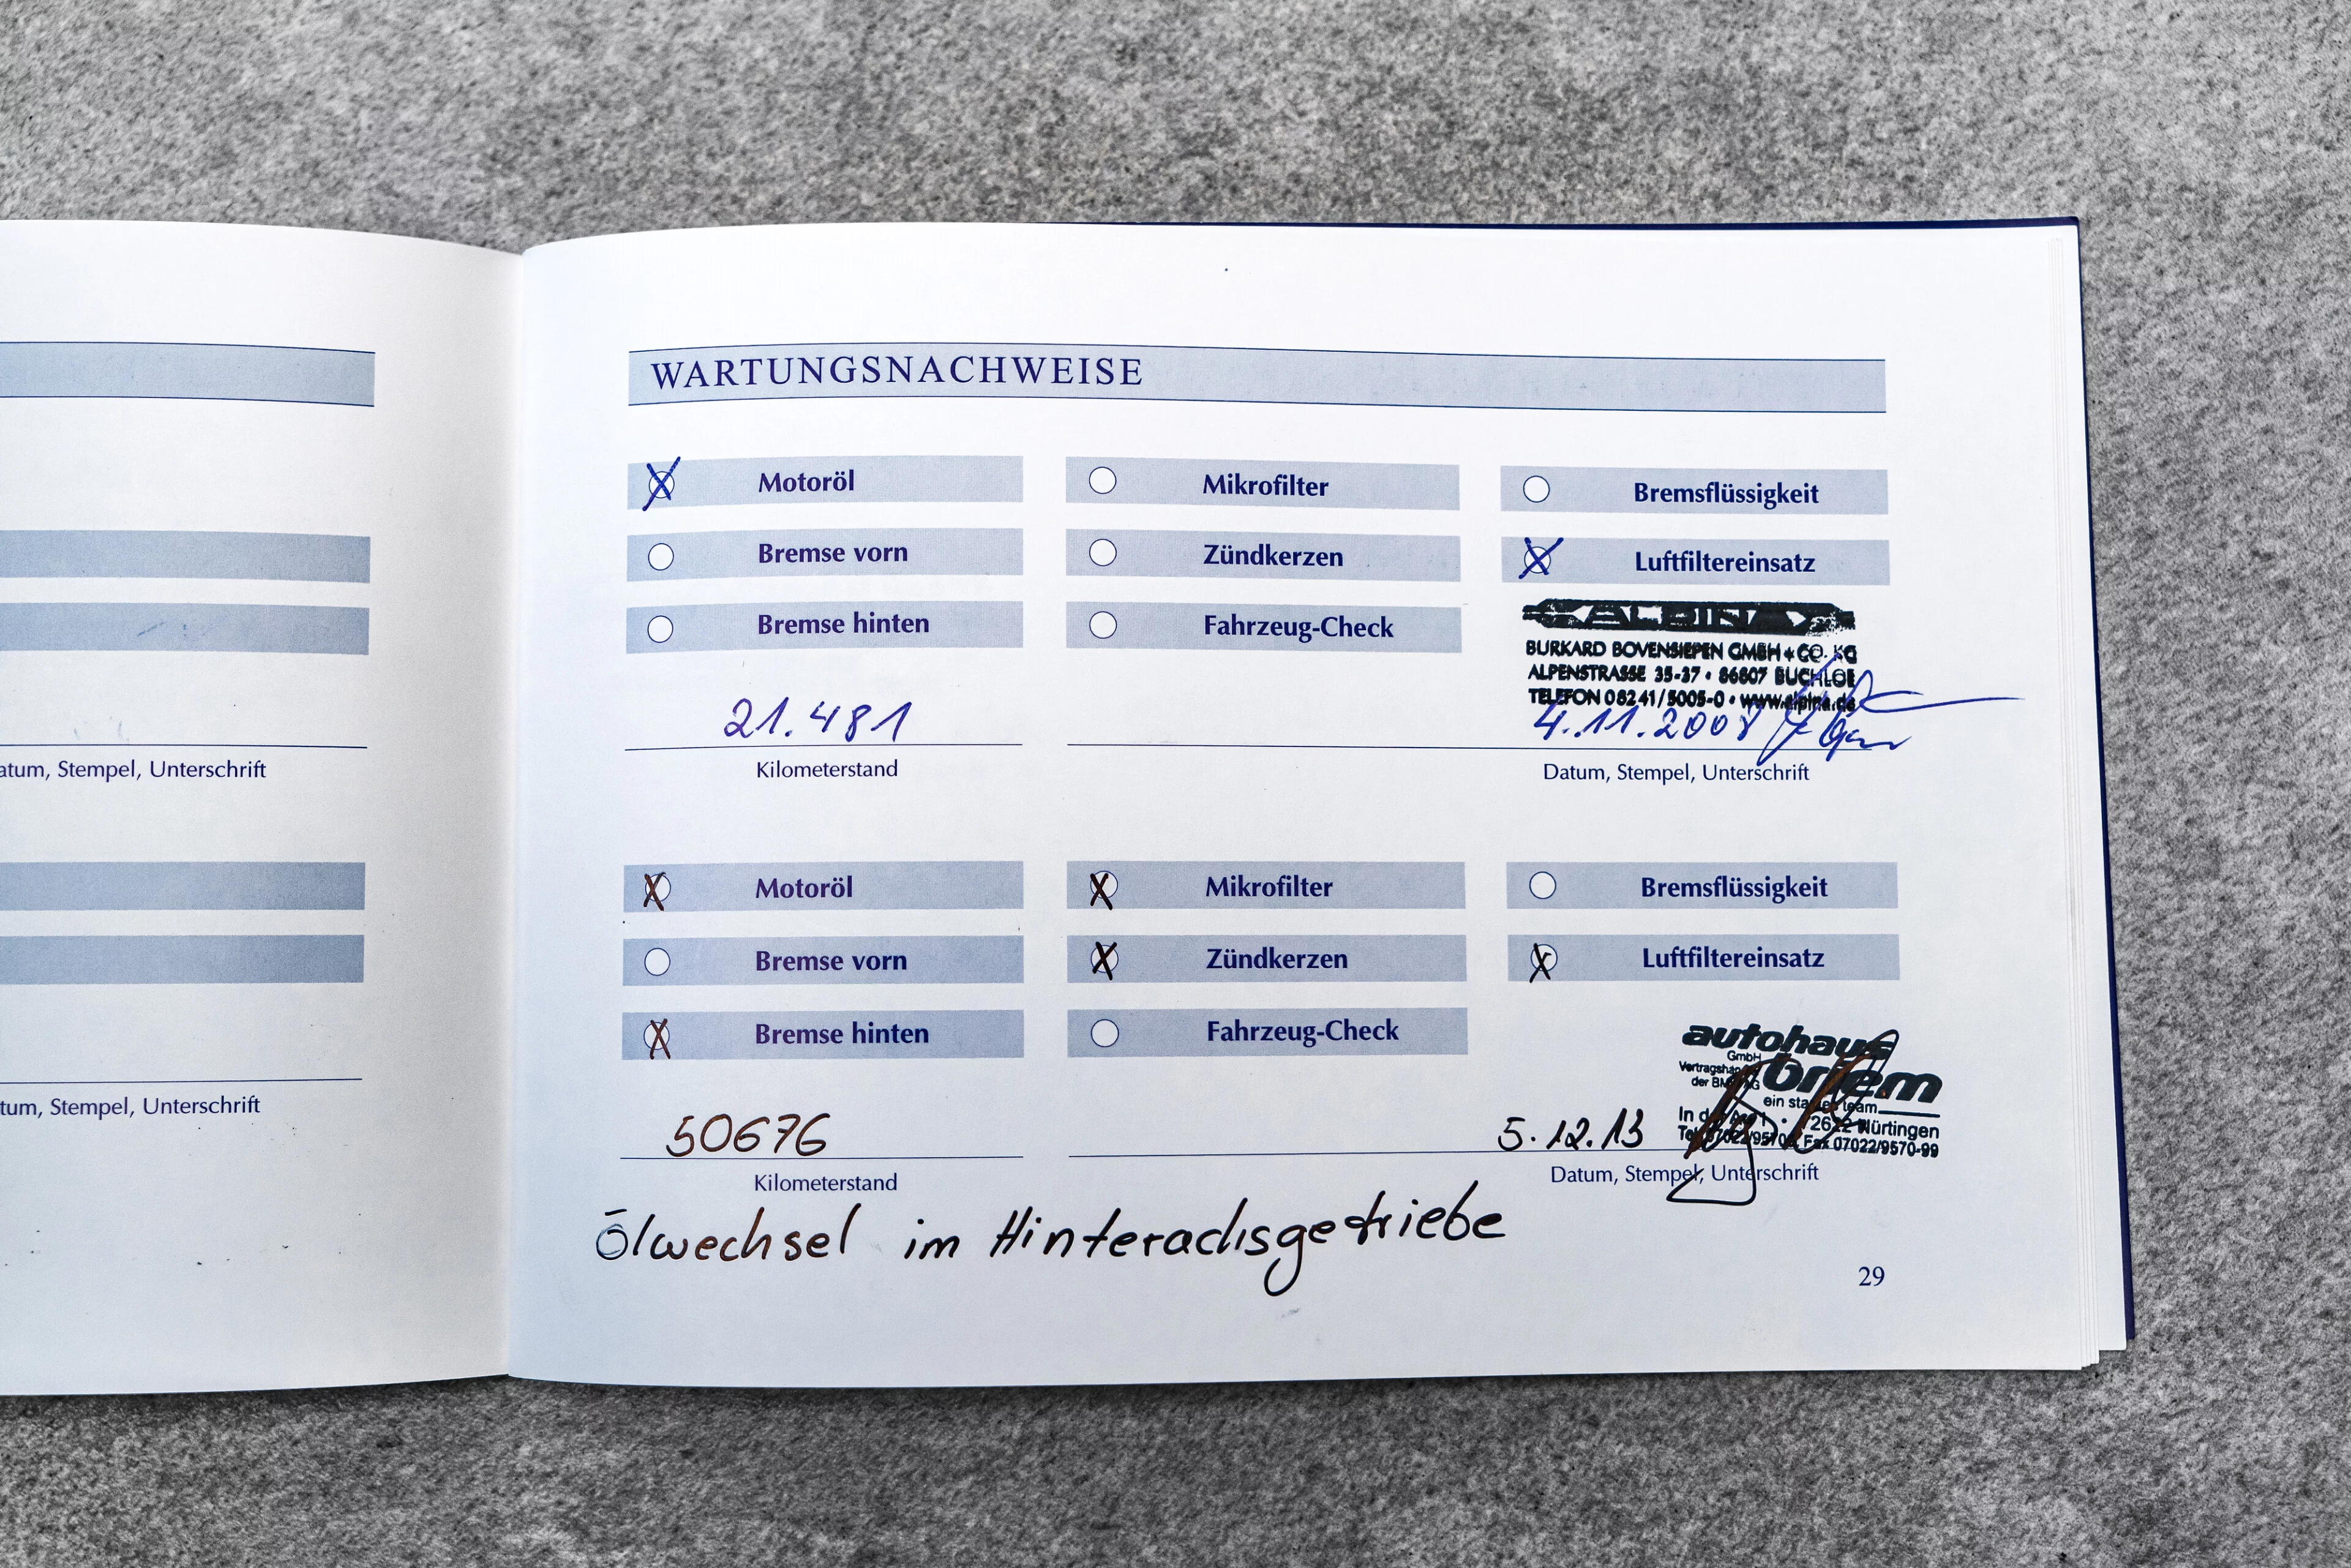 WARTUNGSNACHWEISE
Motoröl Mikrofilter Bremsflüssigkeit
Bremse vorn Zündkerzen Luftfiltereinsatz
Bremse hinten Fahrzeug-Check
ALPINA
BURKARD BOVENSIEPEN GMBH + CO. KG
ALPENSTRASSE 35-37 • 86807 BUCHLOE
TELEFON 08241/5005-0 • www.alpina.de
21.481 4.11.2008
Kilometerstand Datum, Stempel, Unterschrift
atum, Stempel, Unterschrift
Motoröl Mikrofilter Bremsflüssigkeit
Bremse vorn Zündkerzen Luftfiltereinsatz
Bremse hinten Fahrzeug-Check
autohaus
GmbH
der BMW AG
ein starkes team
Nürtingen
Fax 07022/9570-99
50676 5.12.13
Kilometerstand Datum, Stempel, Unterschrift
tum, Stempel, Unterschrift
Ölwechsel im Hinterachsgetriebe
29